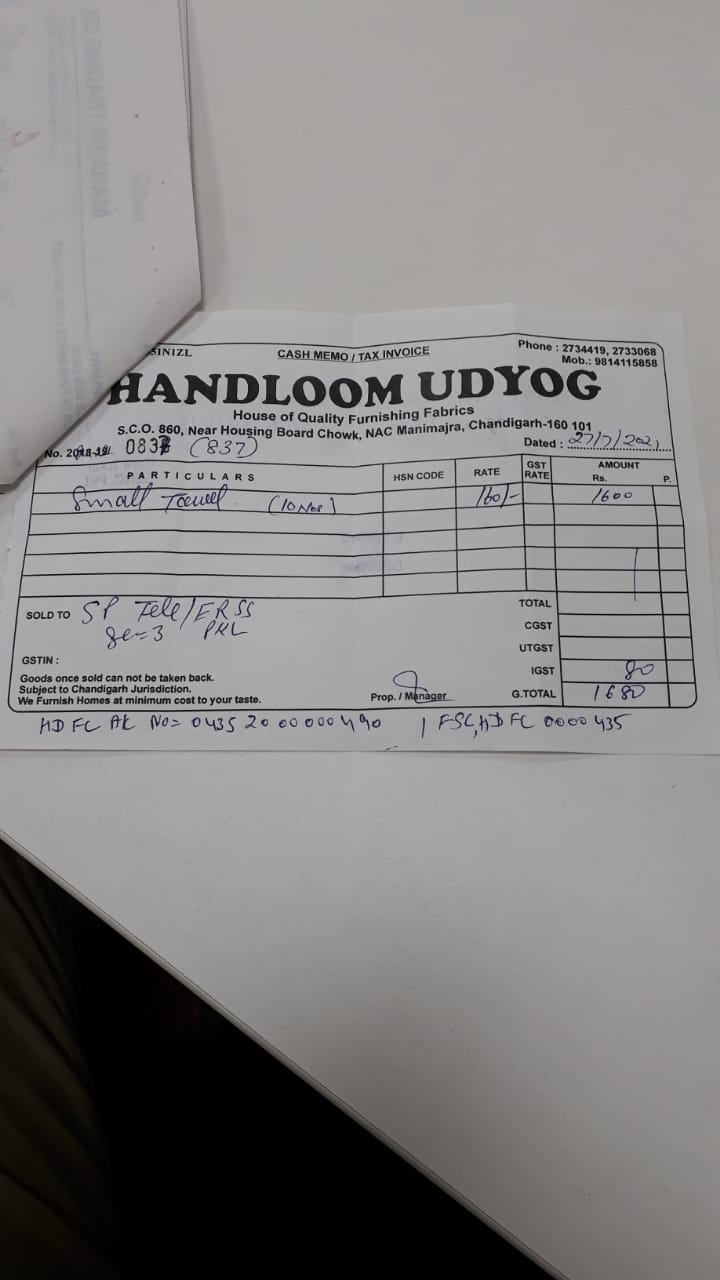 SINIZL CASH MEMO / TAX INVOICE Phone : 2734419, 2733068
Mob.: 9814115858
HANDLOOM UDYOG
House of Quality Furnishing Fabrics
S.C.O. 860, Near Housing Board Chowk, NAC Manimajra, Chandigarh-160 101
No. 083 (837) Dated : 27/7/2021
PARTICULARS HSN CODE RATE GST RATE AMOUNT Rs. P.
Small Towel (10 Nos) 160/- 1600
SOLD TO SP Tele/ERSS TOTAL
Se=3 PKL CGST
UTGST
GSTIN :
Goods once sold can not be taken back. IGST 80
Subject to Chandigarh Jurisdiction.
We Furnish Homes at minimum cost to your taste. Prop. / Manager G.TOTAL 1680
HDFC A/c No= 0435 20 00 000 490 IFSC, HDFC 0000 435
MAHAVIR TRADING CO.